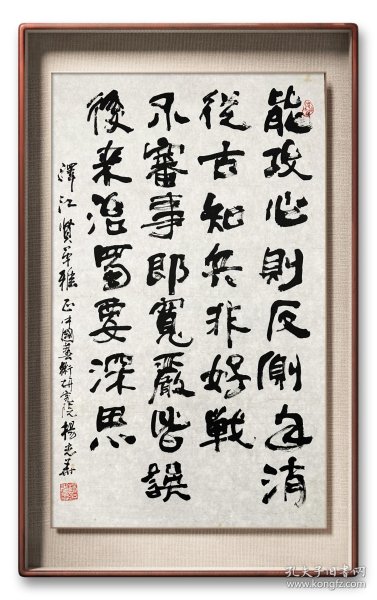 能攻心則反側自消
從古知兵非好戰
不審事即寬嚴皆誤
後來治蜀要深思
澤江賢弟雅正中國藝術研究院楊
孔夫子旧书网
www.kongfz.com